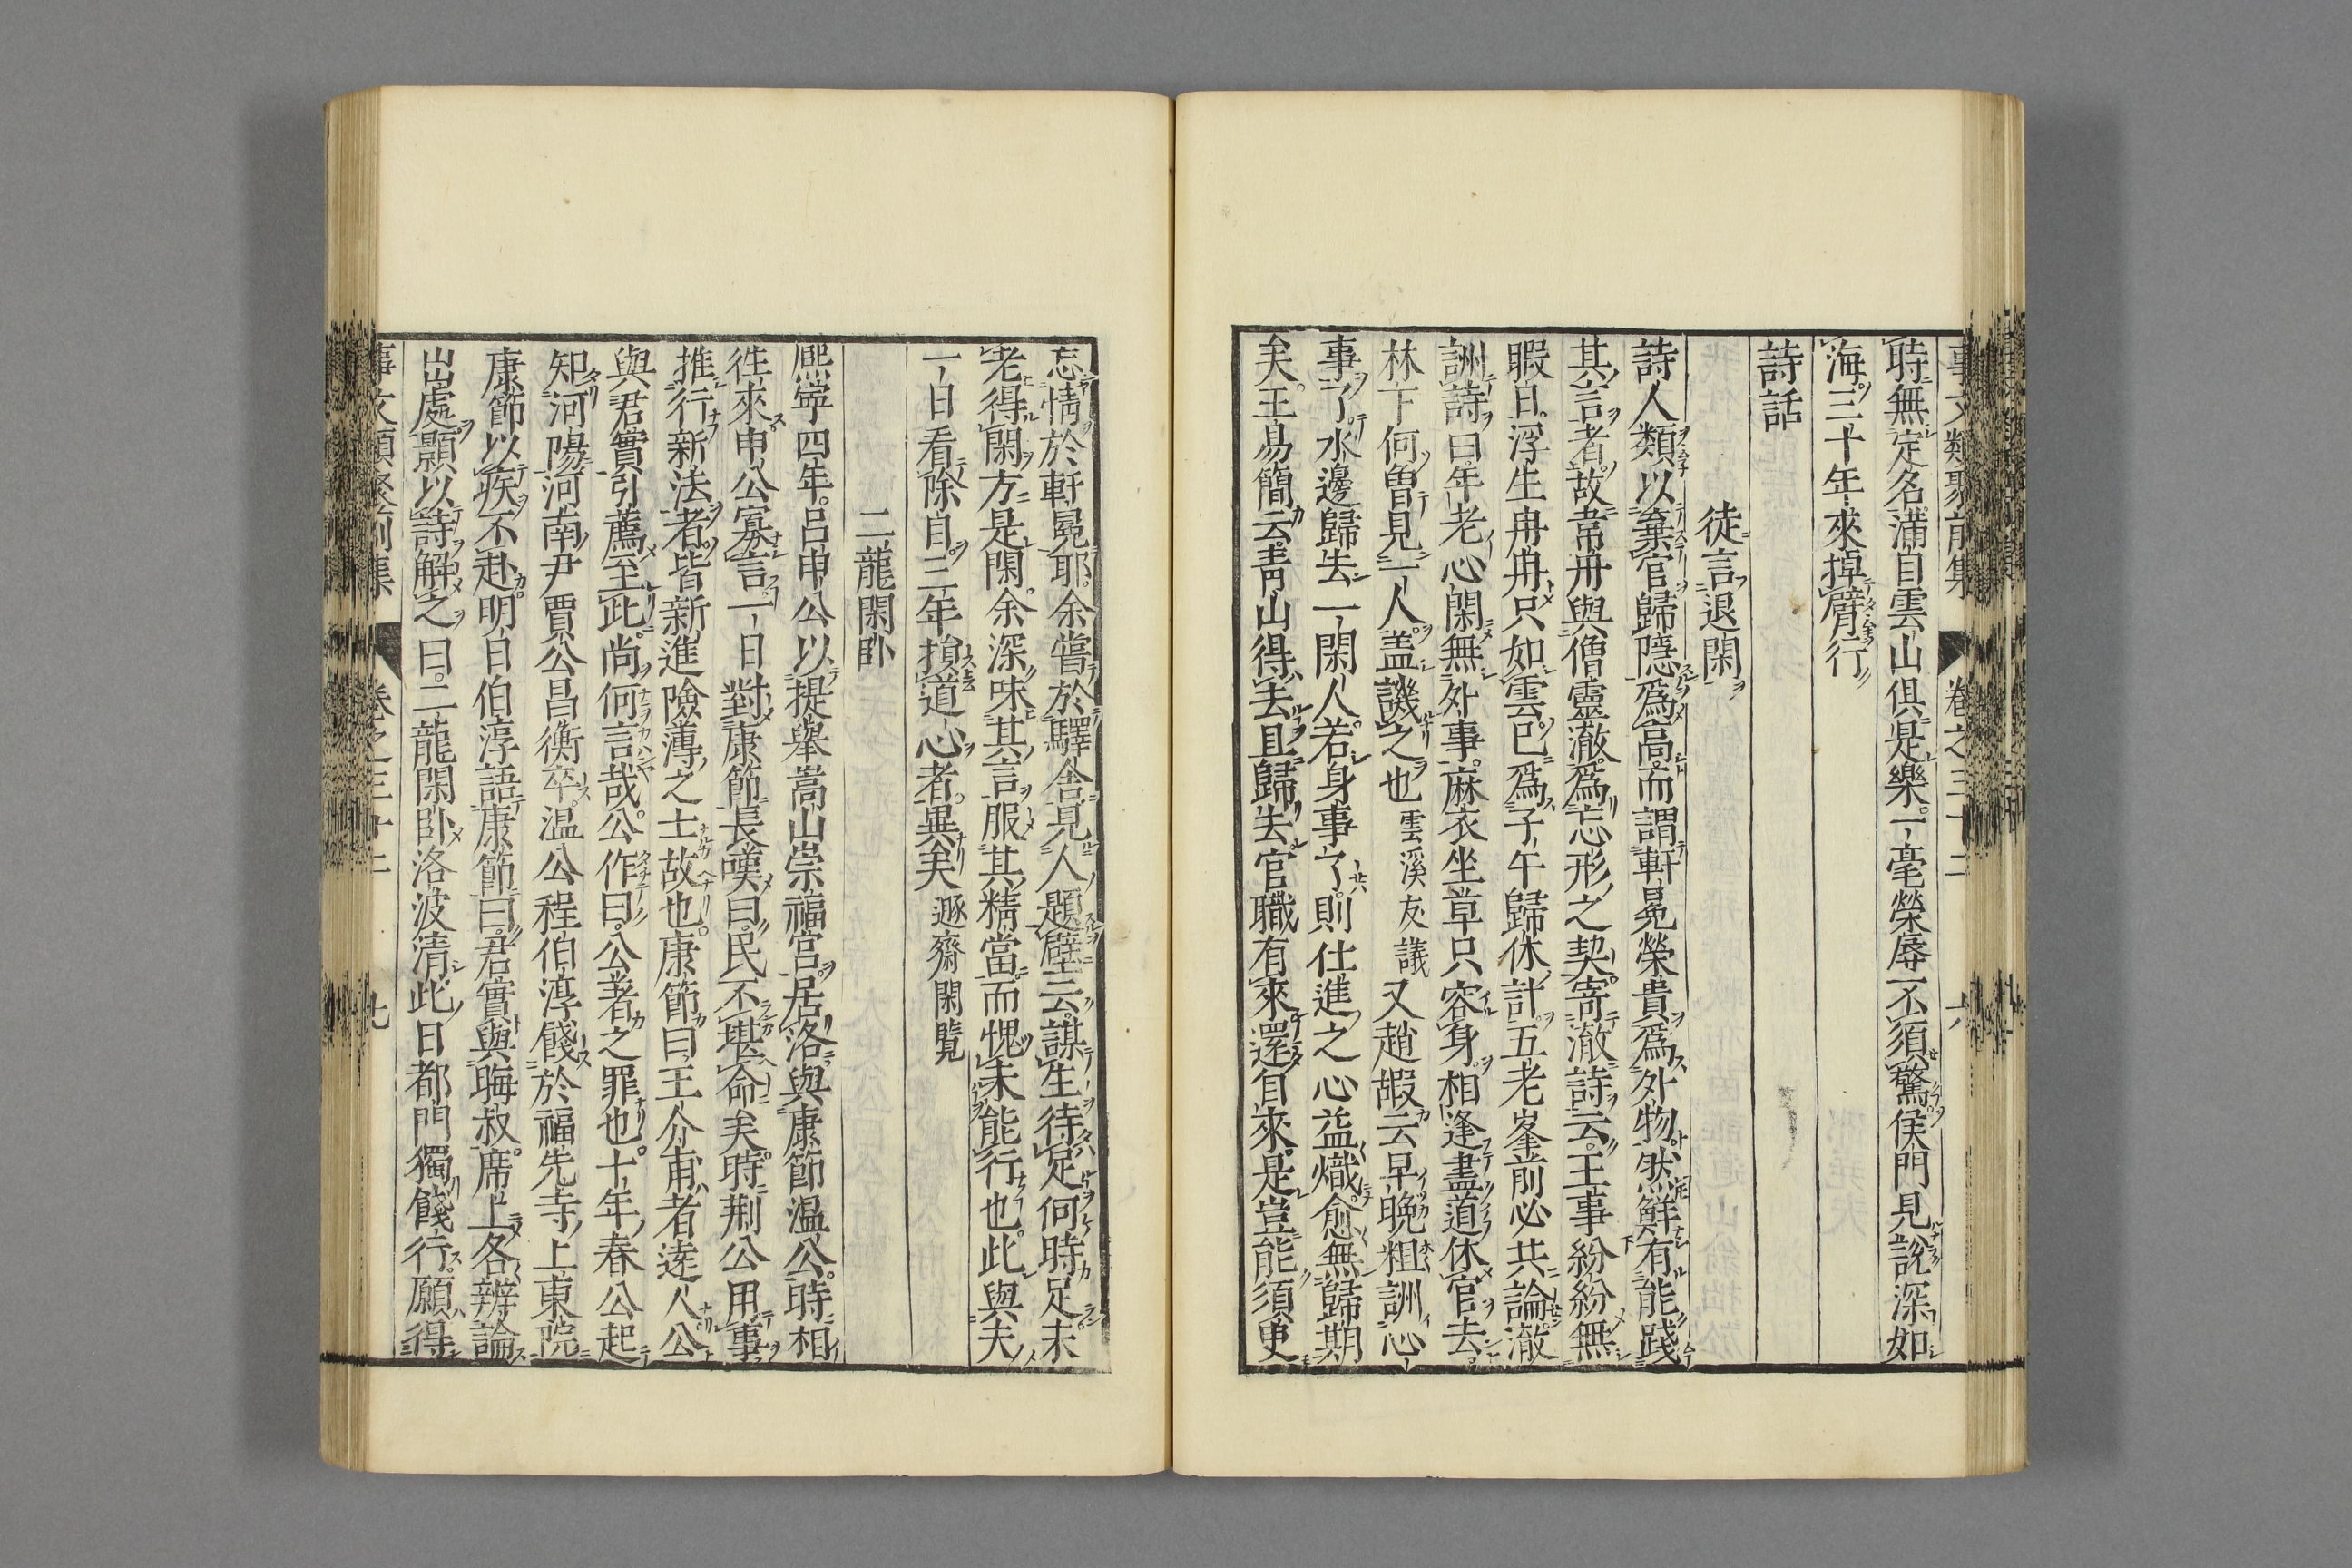 時無定名滿自雲山俱是樂一毫榮辱不須驚侯門見說深如
海三十年來掉臂行
詩話
徒言退閑
詩人類以棄官歸隱爲高而謂軒冕榮貴爲外物然鮮有能踐
其言者故韋丹與僧靈澈爲忘形之契寄澈詩云王事紛紛無
暇日浮生冉冉只如雲已爲子午歸休計五老峯前必共論澈
詶詩曰年老心閑無外事麻衣坐草只容身相逢盡道休官去
林下何曽見一人盖譏之也雲溪友議又趙嘏云早晚粗詶心
事了水邊歸去一閑人若身事了則仕進之心益熾愈無歸期
矣王易簡云靑山得去且歸去官職有來還自來是豈能須臾
忘情於軒冕耶余嘗於驛舍見人題壁云謀生待足何時足未
老得閑方是閑余深味其言服其精當而愧未能行也此與夫
一日看除目三年損道心者異矣遯齋閑覽
二龍閑卧
熈寧四年呂申公以提舉嵩山崇福宮居洛與康節温公時相
徃來申公寡言一日對康節長嘆曰民不堪命矣時荆公用事
推行新法者皆新進險薄之士故也康節曰王介甫者逺人公
與君實引薦至此尚何言哉公作曰公著之罪也十年春公起
知河陽河南尹賈公昌衡卒温公程伯淳餞於福先寺上東院
康節以疾不赴明日伯淳語康節曰君實與晦叔席上各辨論
出處顥以詩解之曰二龍閑卧洛波清此日都門獨餞行願得
事文類聚前集 卷之三十二 七